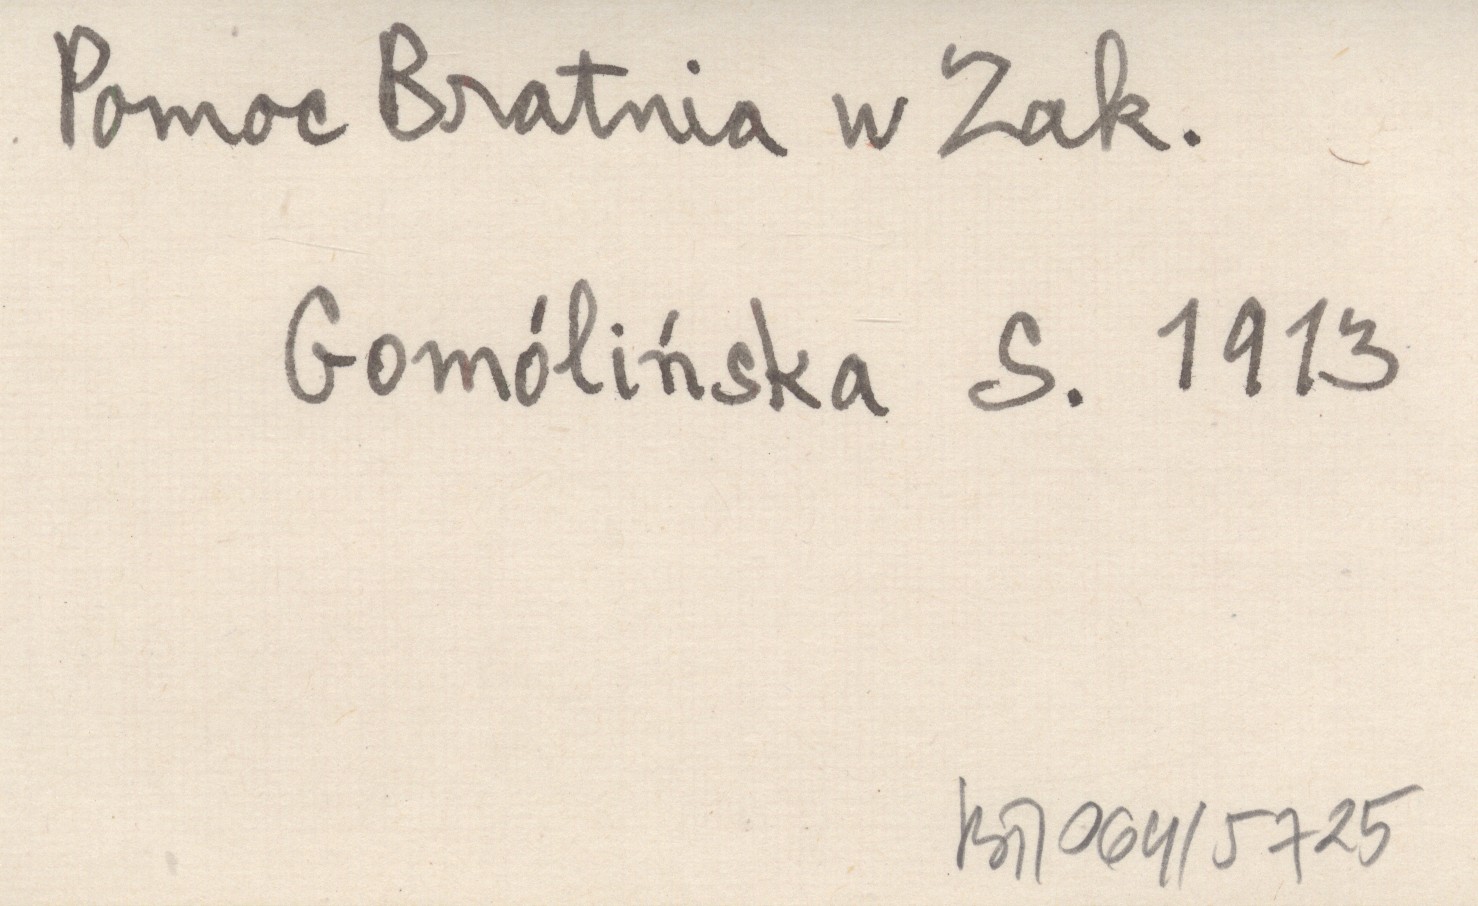 Pomoc Bratnia w Zak.
Gomólińska S. 1913
064/5725